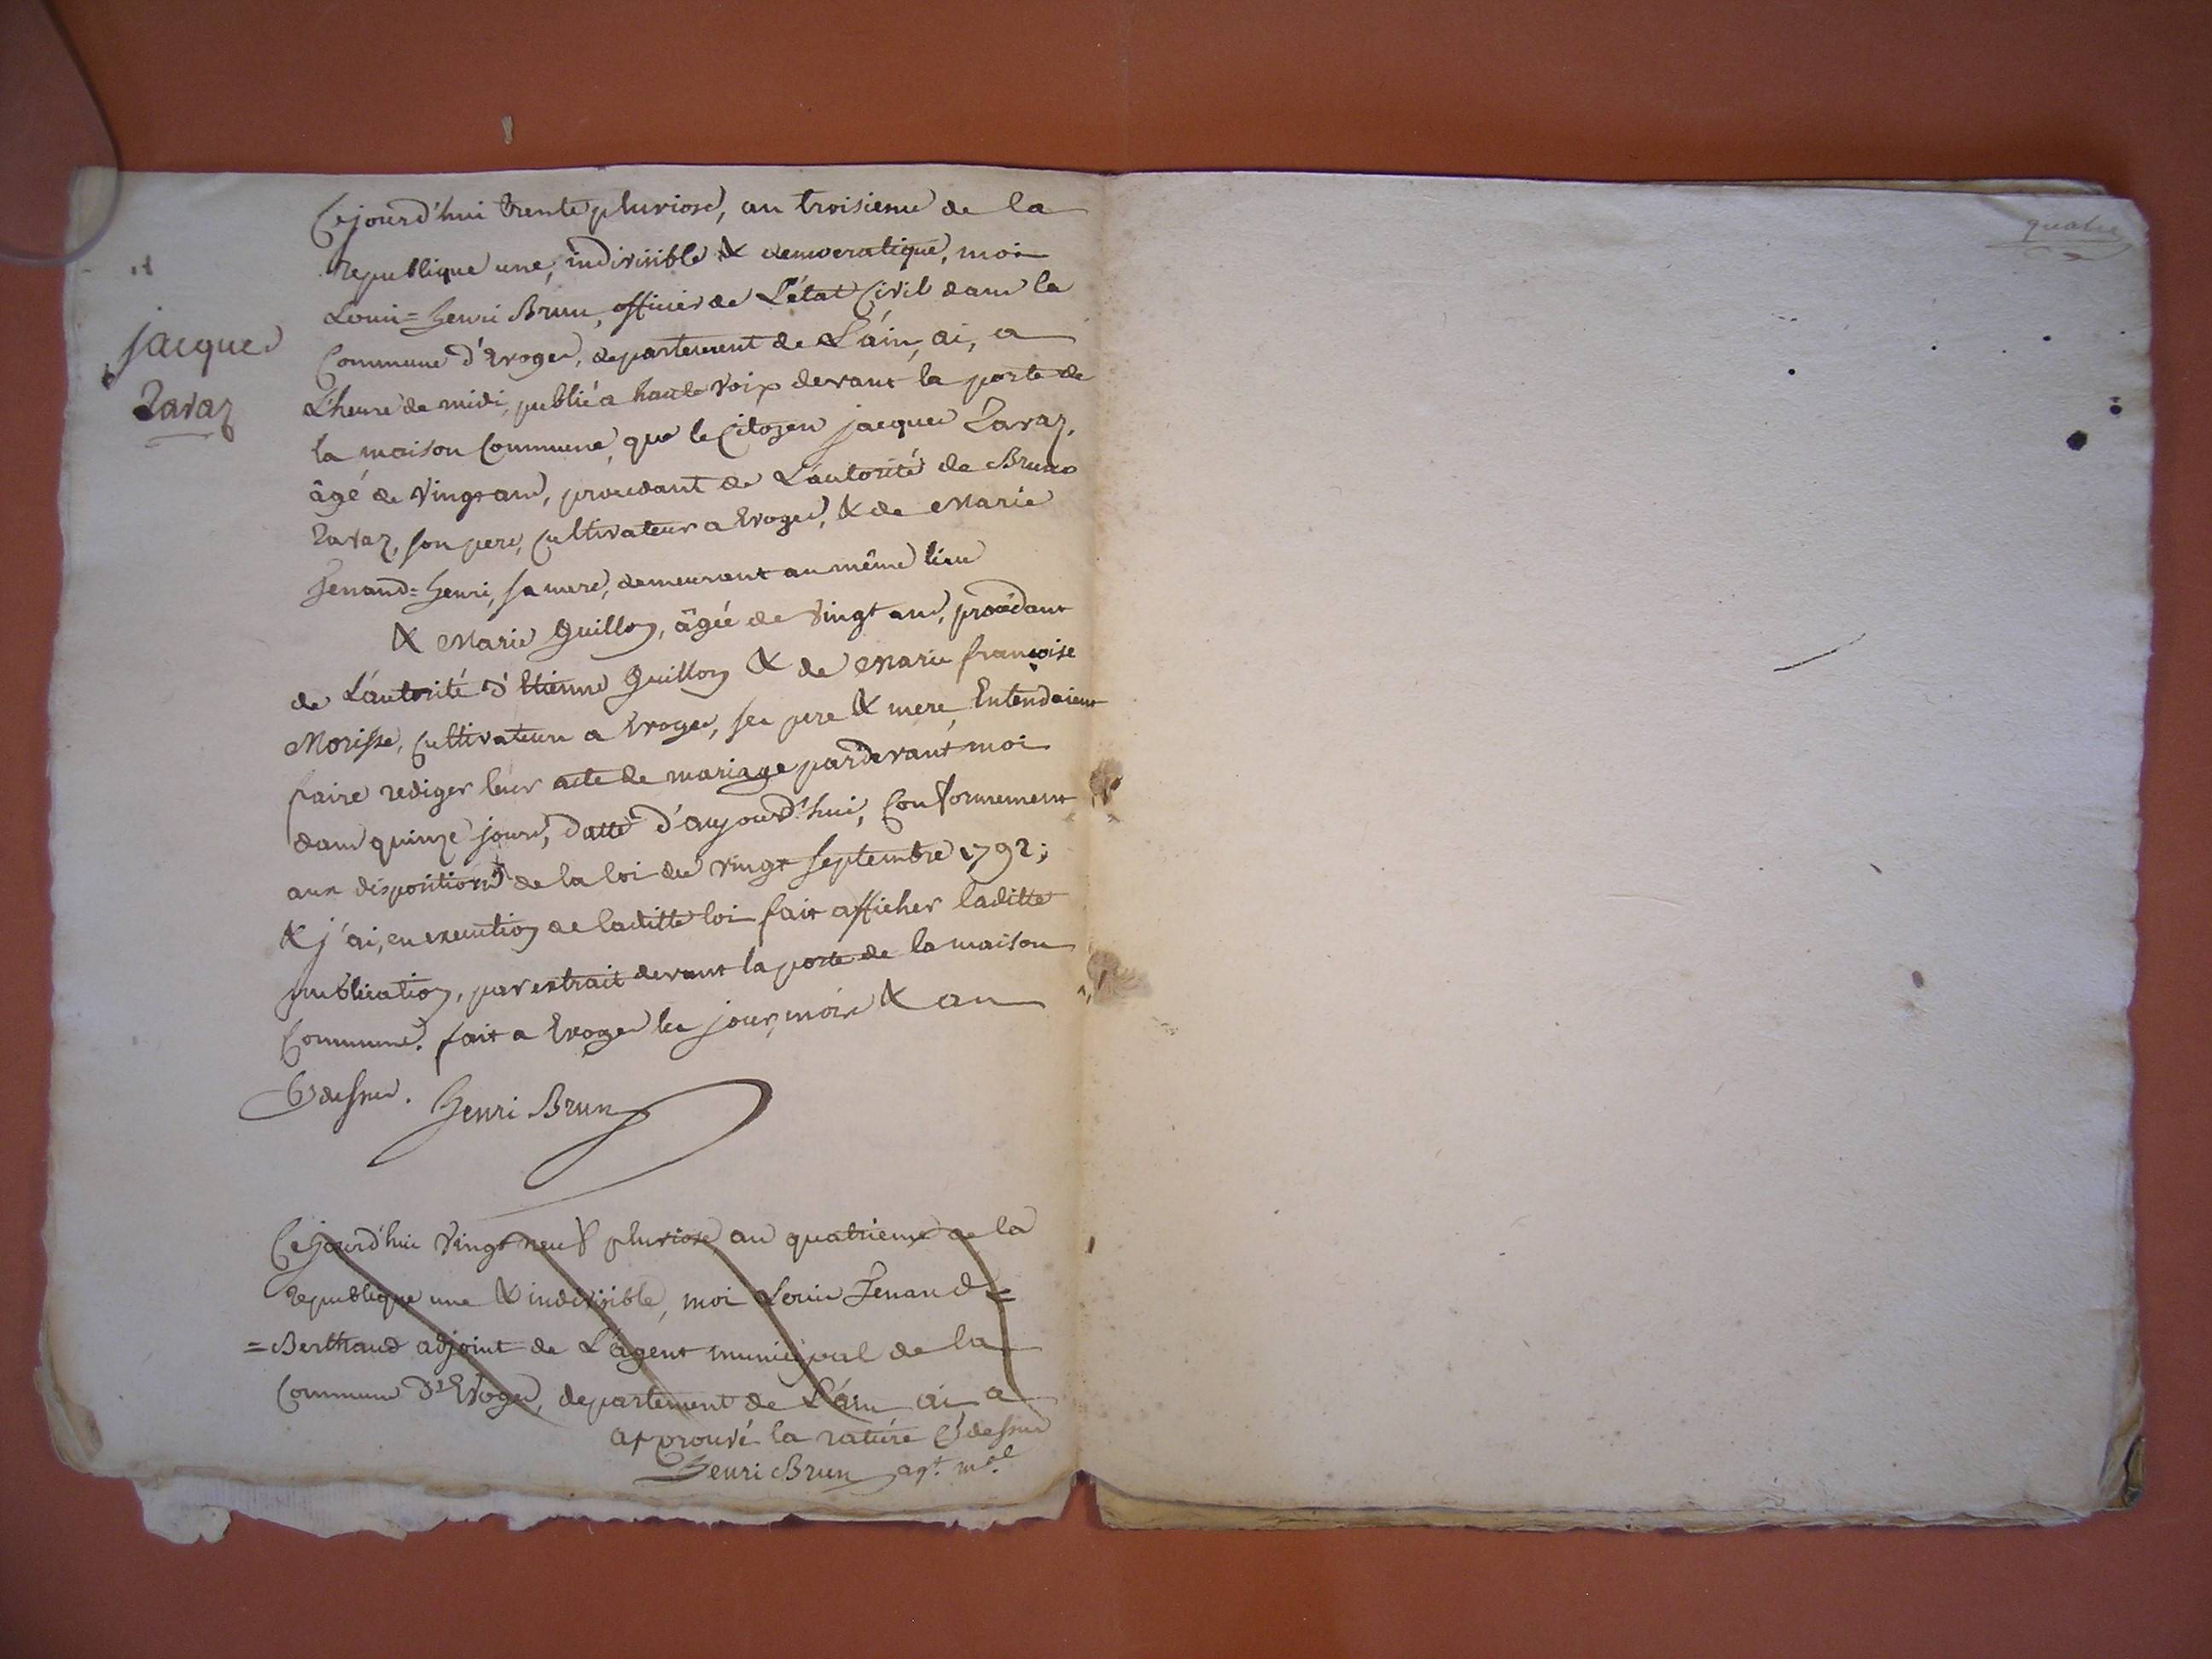 Cejourd'hui trente pluviose, an troisieme de la
republique une, indivisible & democratique, moi
Louis=henri Brun, officier de L'état Civil dans la
Commune d'Evoges, departement de L'ain, ai, a
L'heure de midi, publié a haute voix devant la porte de
la maison Commune, que le Citoyen jacques Ravaz,
âgé de Vingt ans, procedant de L'autorité de Bruno
Ravaz, son pere, Cultivateur a Evoges, & de Marie
Jenand=henri, sa mere, demeurant au même lieu
& Marie Guillon, âgée de Vingt ans, procedant
de L'autorité d'Etienne Guillon & de Marie françoise
Morisse, Cultivateurs a Evoges, ses pere & mere, Entendaient
faire rediger leur acte de mariage pardevant moi
dans quinze jours, datté d'aujourd'hui, Conformement
aux dispositions de la loi du vingt septembre 1792;
& j'ai, en execution de laditte loi fait afficher laditte
publication, par extrait devant la porte de la maison
Commune. fait a Evoges les jour, mois & an
Cy dessus. Henri Brun
jacques
Ravaz
Cejourd'hui Vingt neuf pluviose, an quatrieme de la
republique une & indivisible, moi Louis Jenand=
=Berthaud adjoint de L'agent municipal de la
Commune d'Evoges, departement de L'ain ai a
approuvé la rature Cy dessus
Henri Brun agt. mal.
quatre